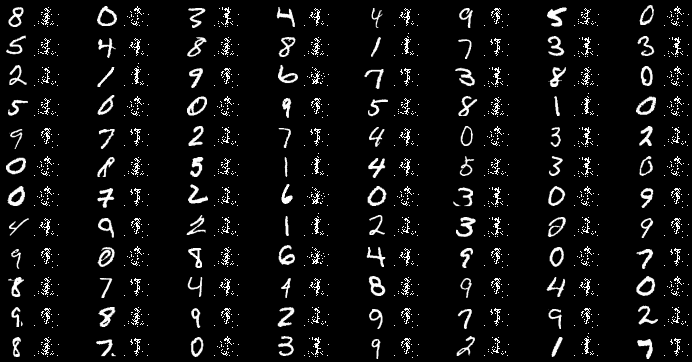 8 0 3 4 4 9 5 0
5 4 8 8 1 7 3 3
2 1 9 6 7 3 8 0
5 0 0 9 5 8 1 0
9 7 2 7 4 0 3 2
0 8 5 1 4 5 3 0
0 7 2 6 0 3 0 9
4 9 2 1 2 3 0 9
9 0 8 6 4 9 0 7
8 7 4 4 8 9 4 0
9 8 9 2 9 7 9 2
8 7 0 3 9 2 1 7